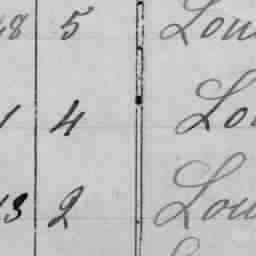 48 5 Lou
1 4 Lou
13 2 Lou